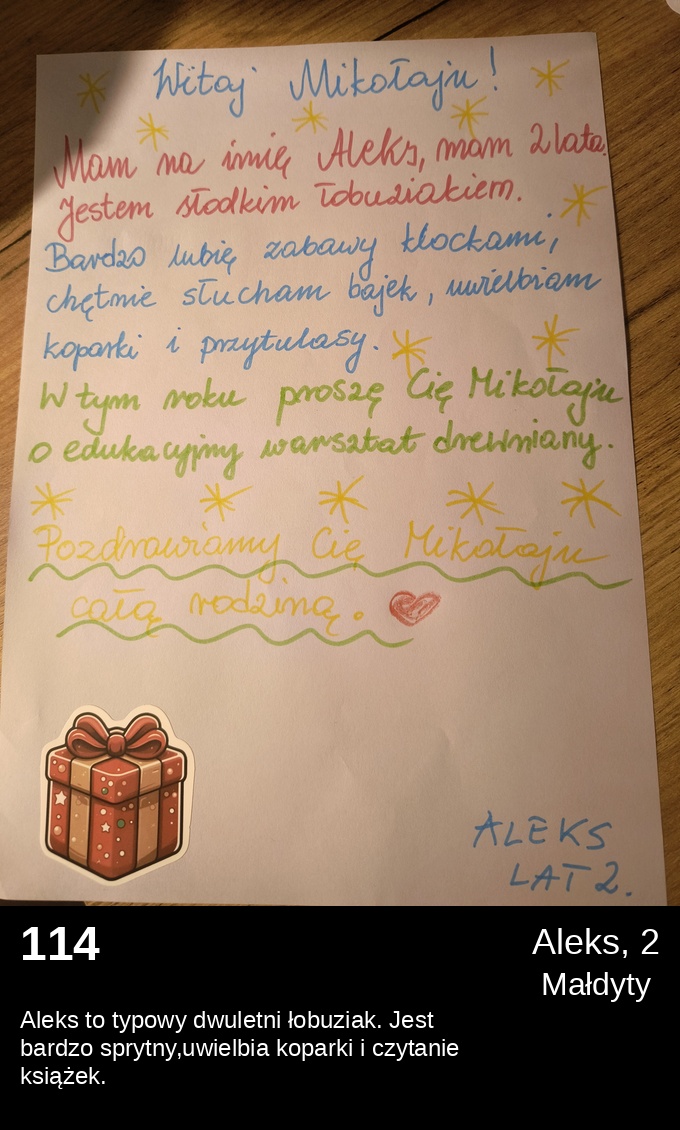 Witaj Mikołaju!
Mam na imię Aleks, mam 2 lata.
Jestem słodkim łobuziakiem.
Bardzo lubię zabawy klockami,
chętnie słucham bajek, uwielbiam
koparki i przytulasy.
W tym roku proszę Cię Mikołaju
o edukacyjny warsztat drewniany.
Pozdrawiamy Cię Mikołaju
całą rodziną.
ALEKS
LAT 2.
114
Aleks, 2
Małdyty
Aleks to typowy dwuletni łobuziak. Jest
bardzo sprytny,uwielbia koparki i czytanie
książek.